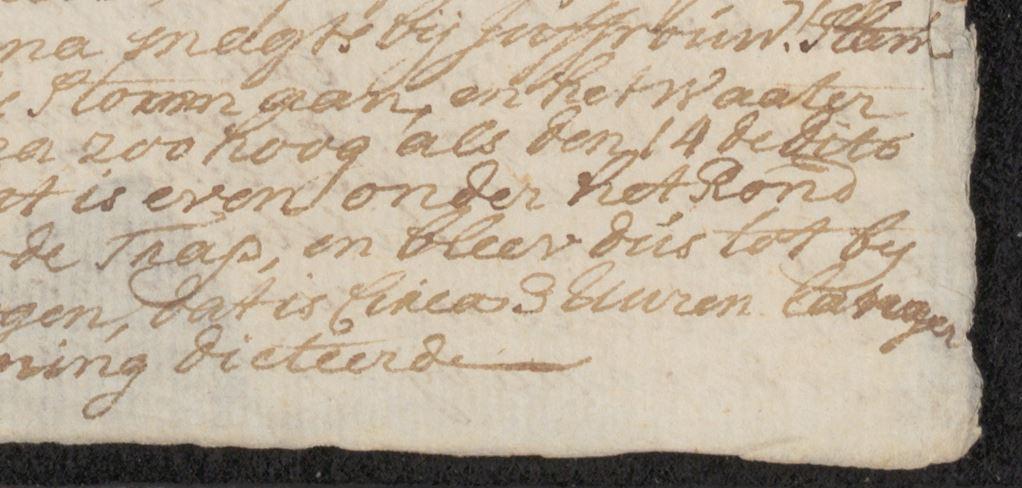 na snagts bij Juffrouw
Storm gaan, en het Waater
zoo hoog als den 14 de dito
t is even onder het Rond
de Trap, en bleev dus tot by
gen, dat is Circa 3 Uuren Langer
ning dicteerde